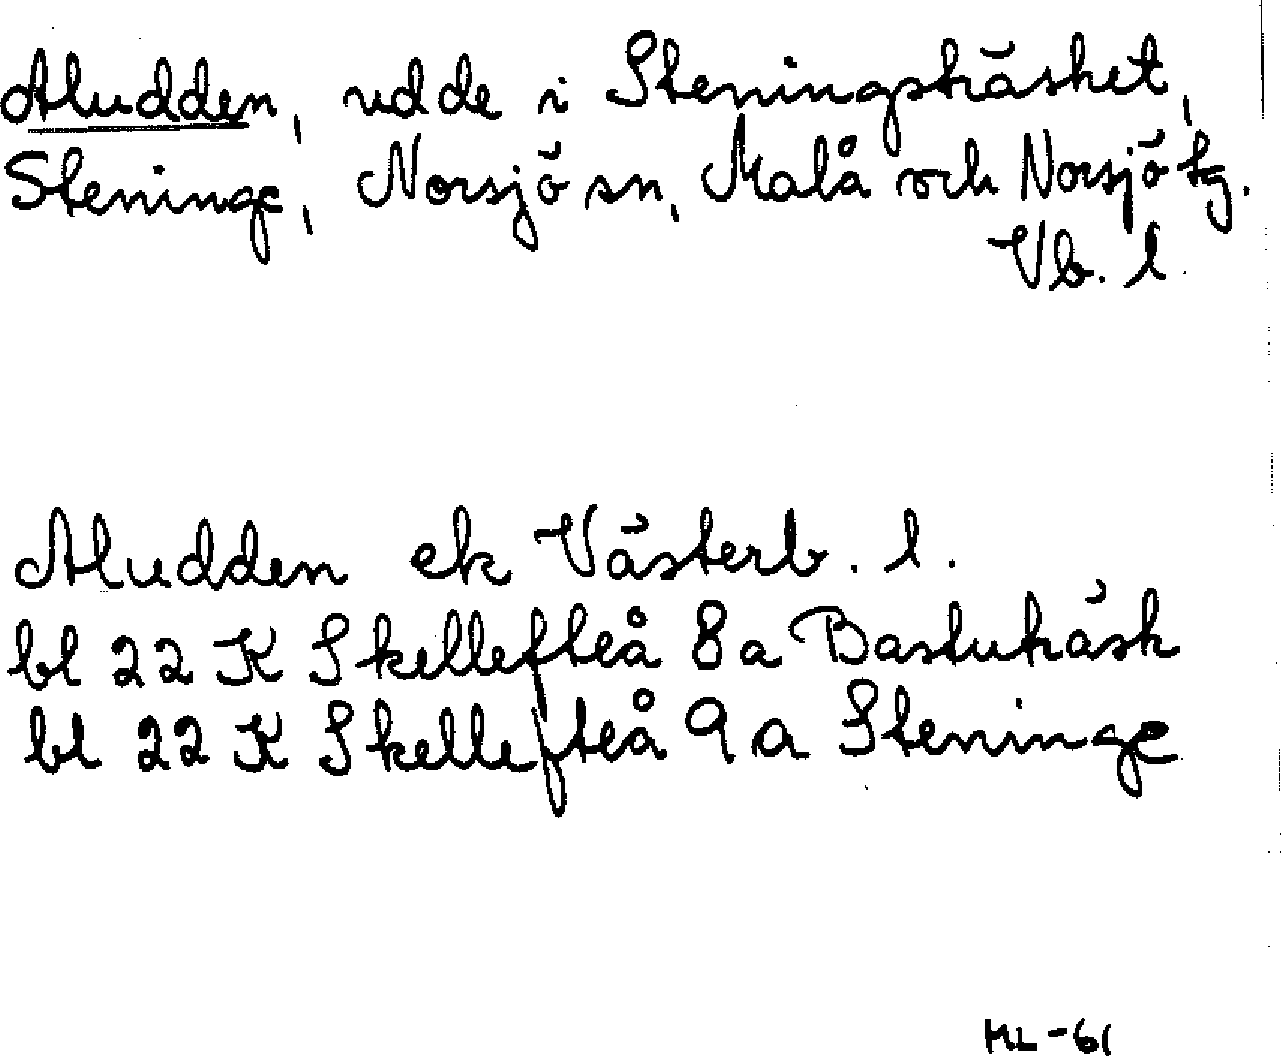 Aludden, udde i Steningsträsket,
Steninge, Norsjö sn, Malå och Norsjö tg.
Vb. l.
Aludden ek Västerb. l.
bl 22 K Skellefteå 8a Bastuträsk
bl 22 K Skellefteå 9a Steninge
ML-61